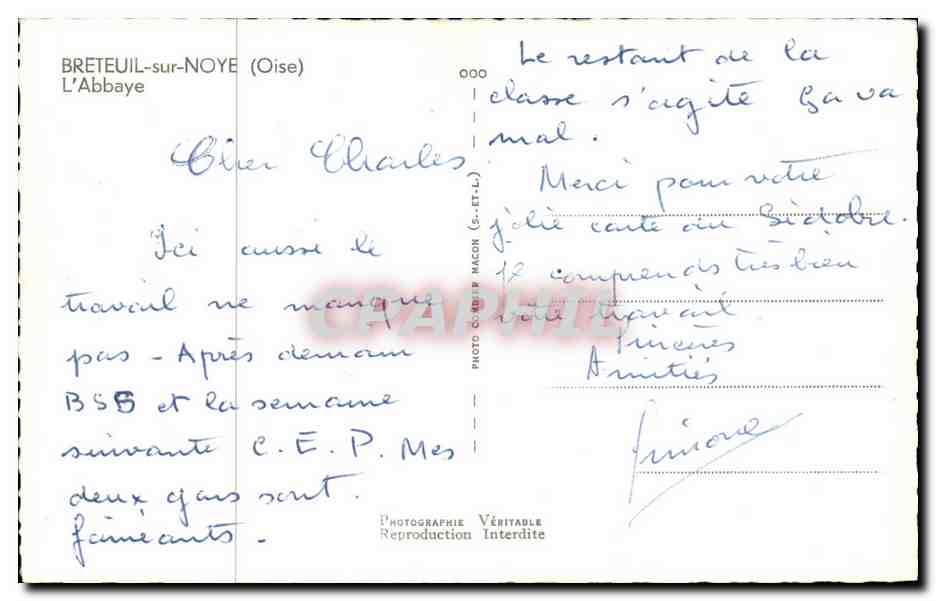 BRETEUIL-sur-NOYE (Oise)
L'Abbaye
Cher Charles
Ici aussi le
travail ne manque
pas - Après demain
BSG et la semaine
suivante C.E.P. Mes
deux gars sont
fainéants.
PHOTOGRAPHIE VÉRITABLE
Reproduction Interdite
000
PHOTO COMBIER MACON (S.-ET-L.)
CPAPHIL
Le restant de la
classe s'agite ça va
mal.
Merci pour votre
jolie carte du Sidobre.
Je comprends très bien
votre travail.
Sincères
Amitiés
Simone